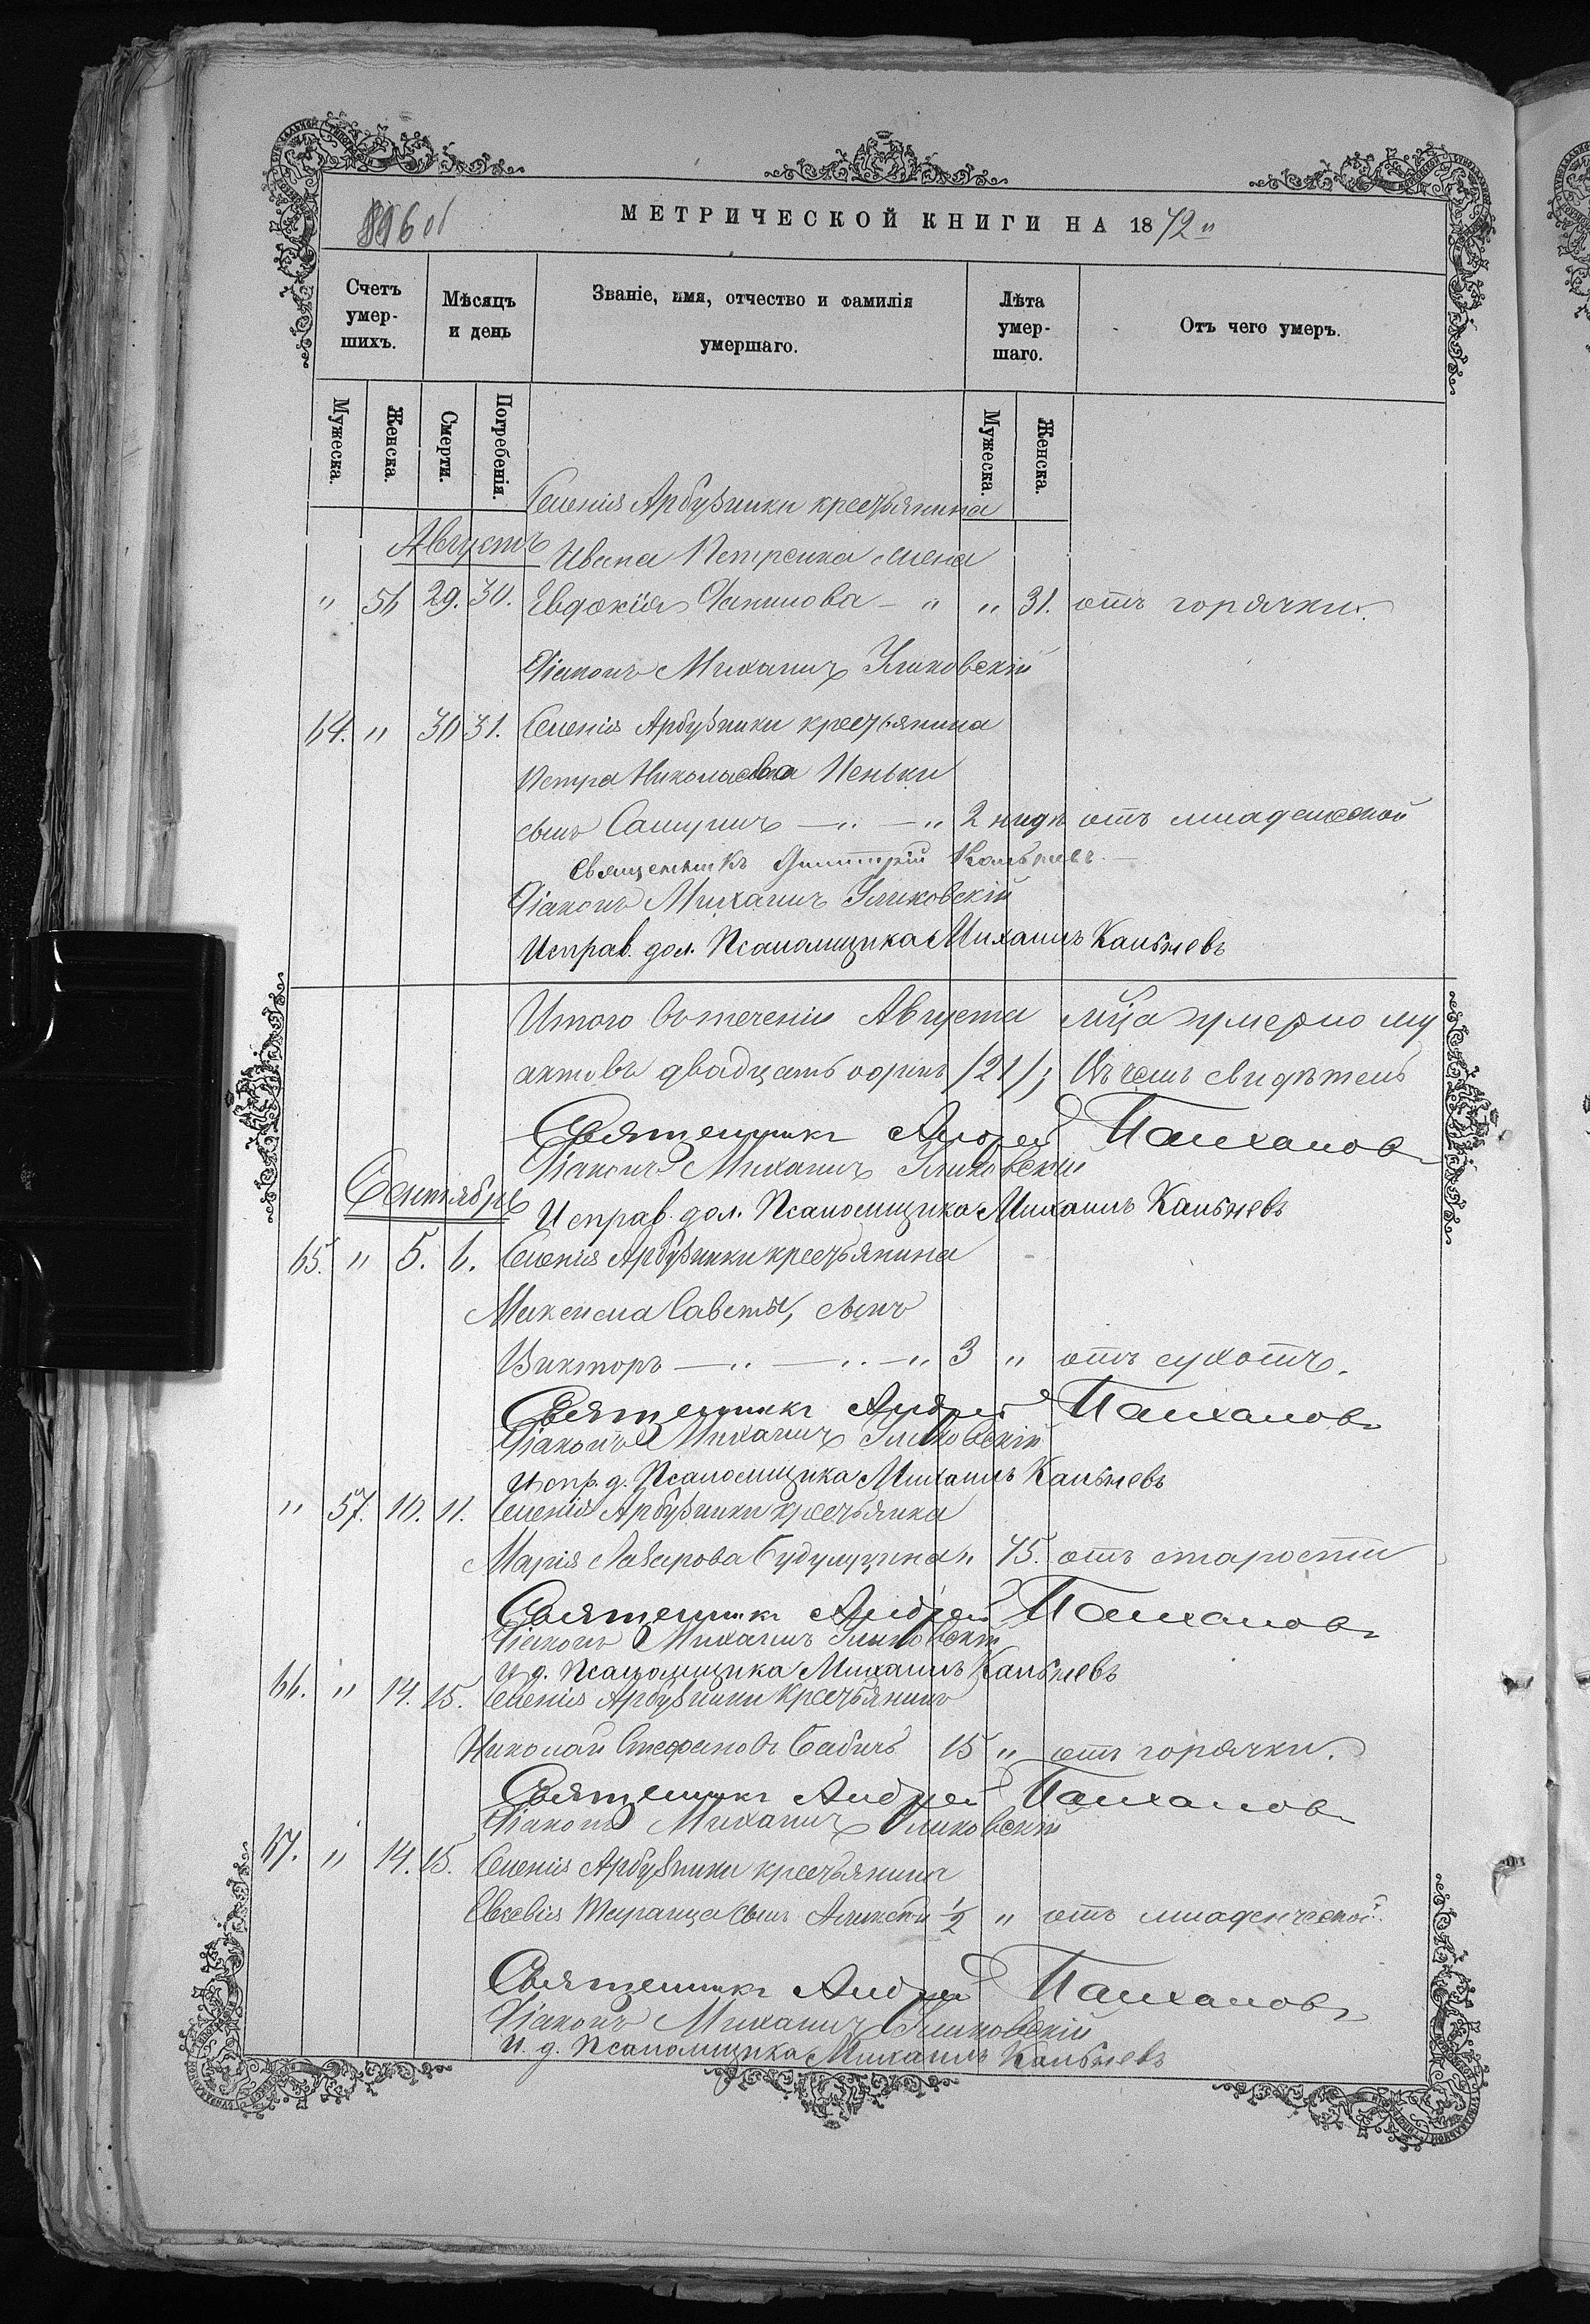 896 об
МЕТРИЧЕСКОЙ КНИГИ НА 1872
Счетъ умер-шихъ.
Мѣсяцъ и день
Званіе, имя, отчество и фамилія умершаго.
Лѣта умер-шаго.
Отъ чего умеръ.
Мужеска. Женска. Смерти. Погребенія. Мужеска. Женска.
Селенія Арбузинки крестьянина
Августъ
Ивана Петренка жена
" 56 29. 30. Евдокія Данилова - " " 31. отъ горячки.
Діаконъ Михаилъ
64. " 30 31. Селенія Арбузинки крестьянина
Петра Николаева Пеньки
сынъ Самуилъ — " — " 2 нидѣ отъ младенческой
Священникъ Димитрій
Діаконъ Михаилъ
Исправ. дол. Псаломщика Михаилъ
Итого въ теченіи Августа мца умерло му
актовъ двадцать одинъ /21/; Въ чемъ свидѣтель
Священникъ Андрей
Діаконъ Михаилъ
Сентябрь
Исправ. дол. Псаломщика Михаилъ
65. " 5. 6. Селенія Арбузинки крестьянина
Максима Саветы, сынъ
Викторъ — " — " — " 3 " отъ сухотъ.
Священникъ Андрей
Діаконъ Михаилъ
Испр. д. Псаломщика Михаилъ
" 57. 10. 11. Селенія Арбузинки крестьянка
Марія Лазарова " 75. отъ старости
Священникъ Андрей
Діаконъ Михаилъ
И. д. Псаломщика Михаилъ
66. " 14. 15. Селенія Арбузинки крестьянинъ
Николай Стефановъ Бабичъ 15 " отъ горячки.
Священникъ Андрей
Діаконъ Михаилъ
67. " 14. 15. Селенія Арбузинки крестьянина
Евсевія Таранца сынъ Алексѣй ½ " отъ младенческой.
Священникъ Андрей
Діаконъ Михаилъ
И. д. Псаломщика Михаилъ